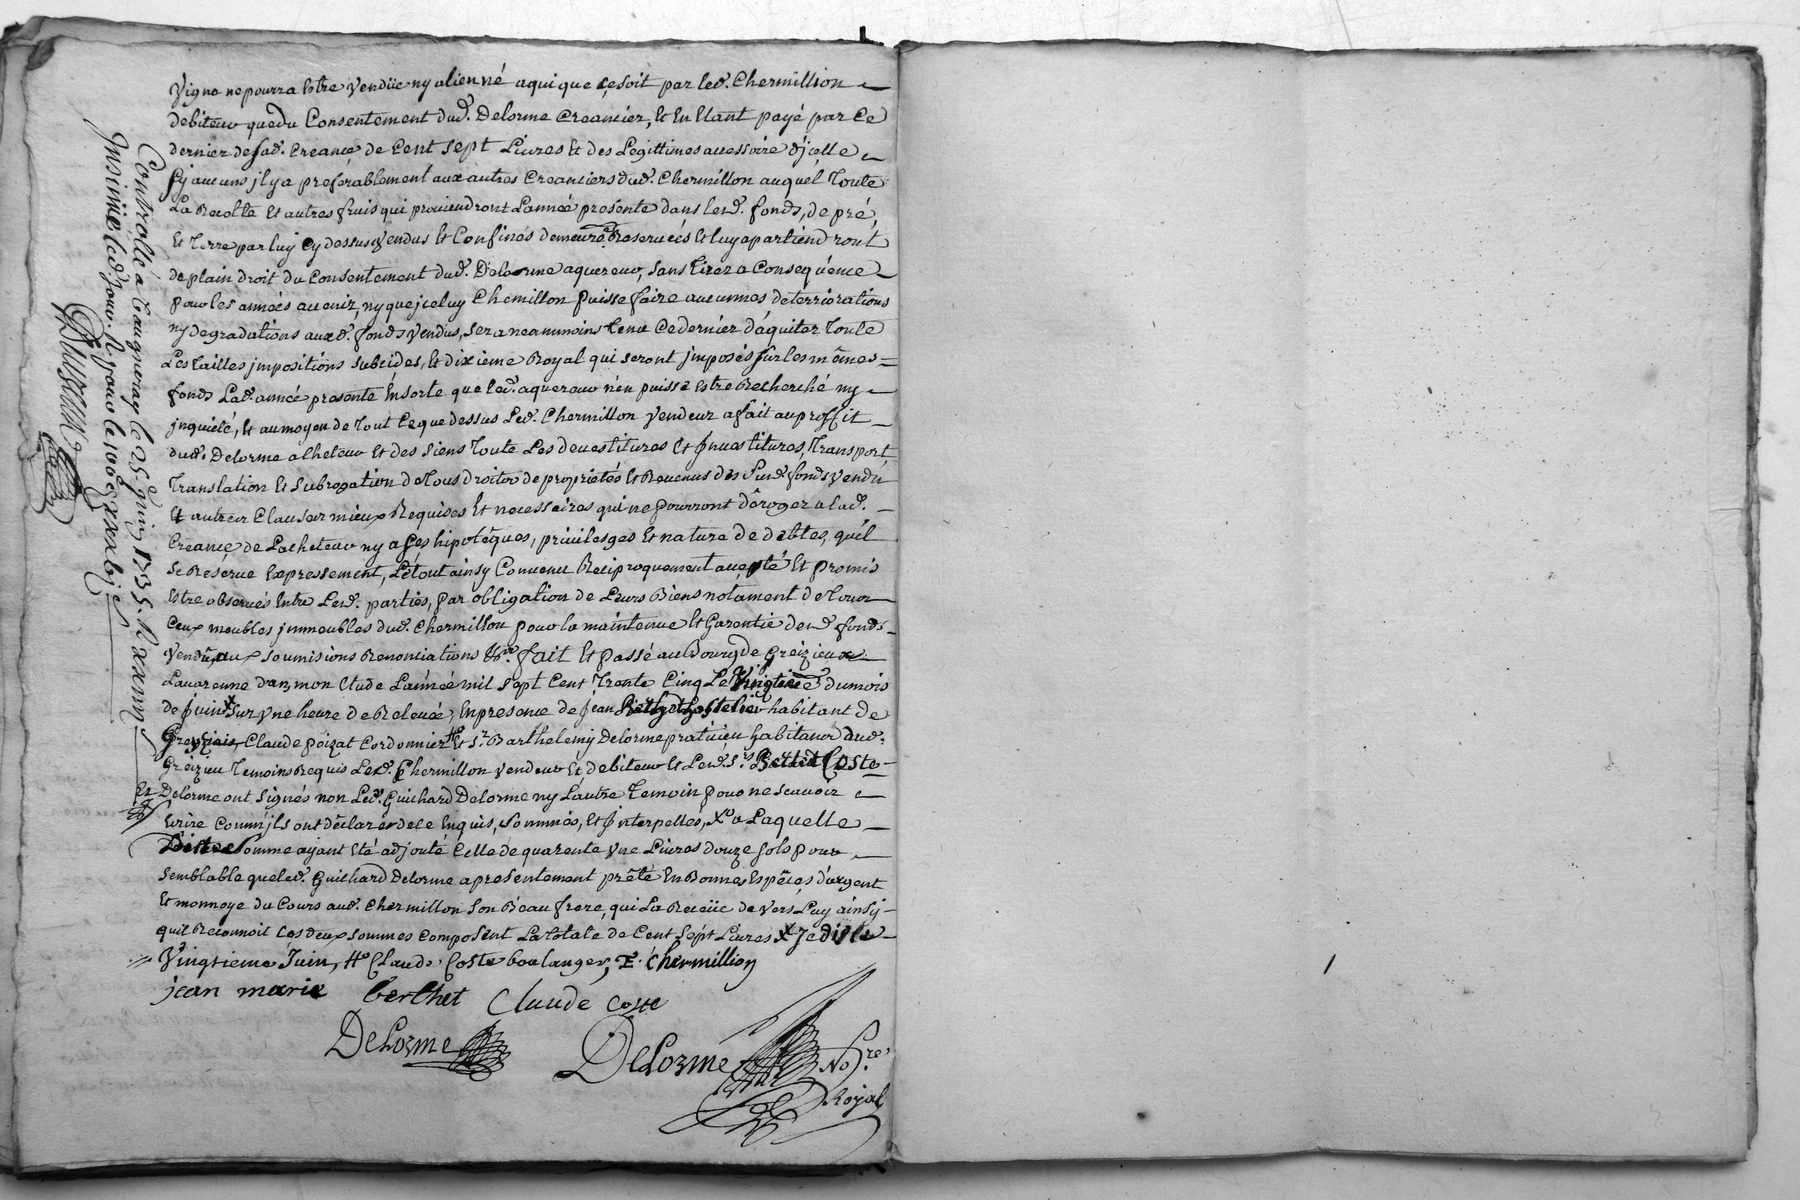 Vigne ne pourra Estre Vendüe ny alienné a qui que çe soit par led. Chermillion
debiteur que du Consentement dud. Delorme Creancier, Et En Etant payé par Ce
dernier de sad. Creance de Cent Sept Livres Et des Legittimes accessoire d'jcelle
sy aucuns jl y a preferablement aux autres Creanciers dud. Chermillon auquel Toute
La Recolte Et autres fruis qui proviendront L'année presente dans lesd. fonds, de pré
Et Terre par luy Cy dessus vendus Et Confinés demeure Reserveés Et luy apartiendront
de plain droit du Consentement dud. Delorme aquereur, sans tirer a Consequénce
pour les années avenir, ny que jceluy Chemillon puisse faire aucunnes deterriorations
ny degradations auxd. fonds vendus, sera neanmoins tenu Ce dernier d'aquiter Toute
Les tailles jmpositions subcides, Et dixieme Royal qui seront jmposés sur les mêmes
fonds Lad. année presente Ensorte que led. aquereur n'en puisse Estre Recherché ny
jnquieté, Et au moyen de Tout Ce que dessus Led. Chermillon Vendeur a fait au proffit
dud. Delorme acheteur Et des siens Toute Les devestitures Et jnvestitures, Transport
Translation Et subrogation de Tous droits de proprietés Et Revenus des susd. fonds vendu
Et autres Clauses mieux Requises Et necessaires qui ne pourront déroger a lad.
Creance de L'acheteur ny a ses hipotêques, privileges Et nature de debtes, qu'il
se Reserve Expressement, Le tout ainsy Convenu Reciproquement accepté Et promis
Estre observés Entre Lesd. parties, par obligation de Leurs Biens notament de Tous
Ceux meubles jmmeubles dud. Chermillon pour la maintenue Et Garentie desd. fonds
Vendu, aux soumisions Renontiations &c. fait Et passé au Bourg de Greizieu
Lavarenne dans mon Etude L'année mil sept Cent Trente Cinq Le Vingtieme du mois
de Juin X sur Vne heure de Relevée, En presence de Jean habitant de
Claude poizat Cordonnier H Et Sr. Barthelemy Delorme praticien habitans dud.
Greizieu Temoins Requis Led. Chermillon vendeur Et debiteur Et Lesd. Srs. Coste
Et Delorme ont signés non Led. Guichard Delorme ny L'autre Temoin pour ne scavoir
Ecrire Comm'jls ont déclarés de ce Enquis, sommés, Et jnterpellés, X a Laquelle
somme ayant Eté adjouté Celle de quarente Vne Livres douze sols pour
semblable que led. Guichard Delorme a presentement prêté En Bonnes Espêces d'argent
Et monnoye du Cours aud. Chermillon son Beau frere, qui La Recüe de vers Luy ainsy
quil Reconnoit Les deux sommes Composent La totale de Cent Sept Livres X Je dis le
Vingtieme Juin, H Claude Coste boulanger, E. Chermillion
jean marie berthet Claude Coste
DeLorme
DeLorme Nore. Royal
Controllé a Vaugneray le 25e juin 1735. R
Insinüé led. jour R pour le 106e